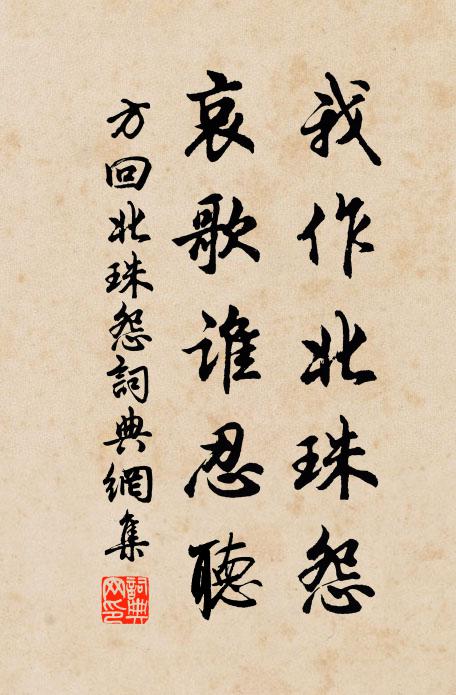 我作北珠怨
哀歌誰忍聽
方回北珠怨詞典網集
詞典網印